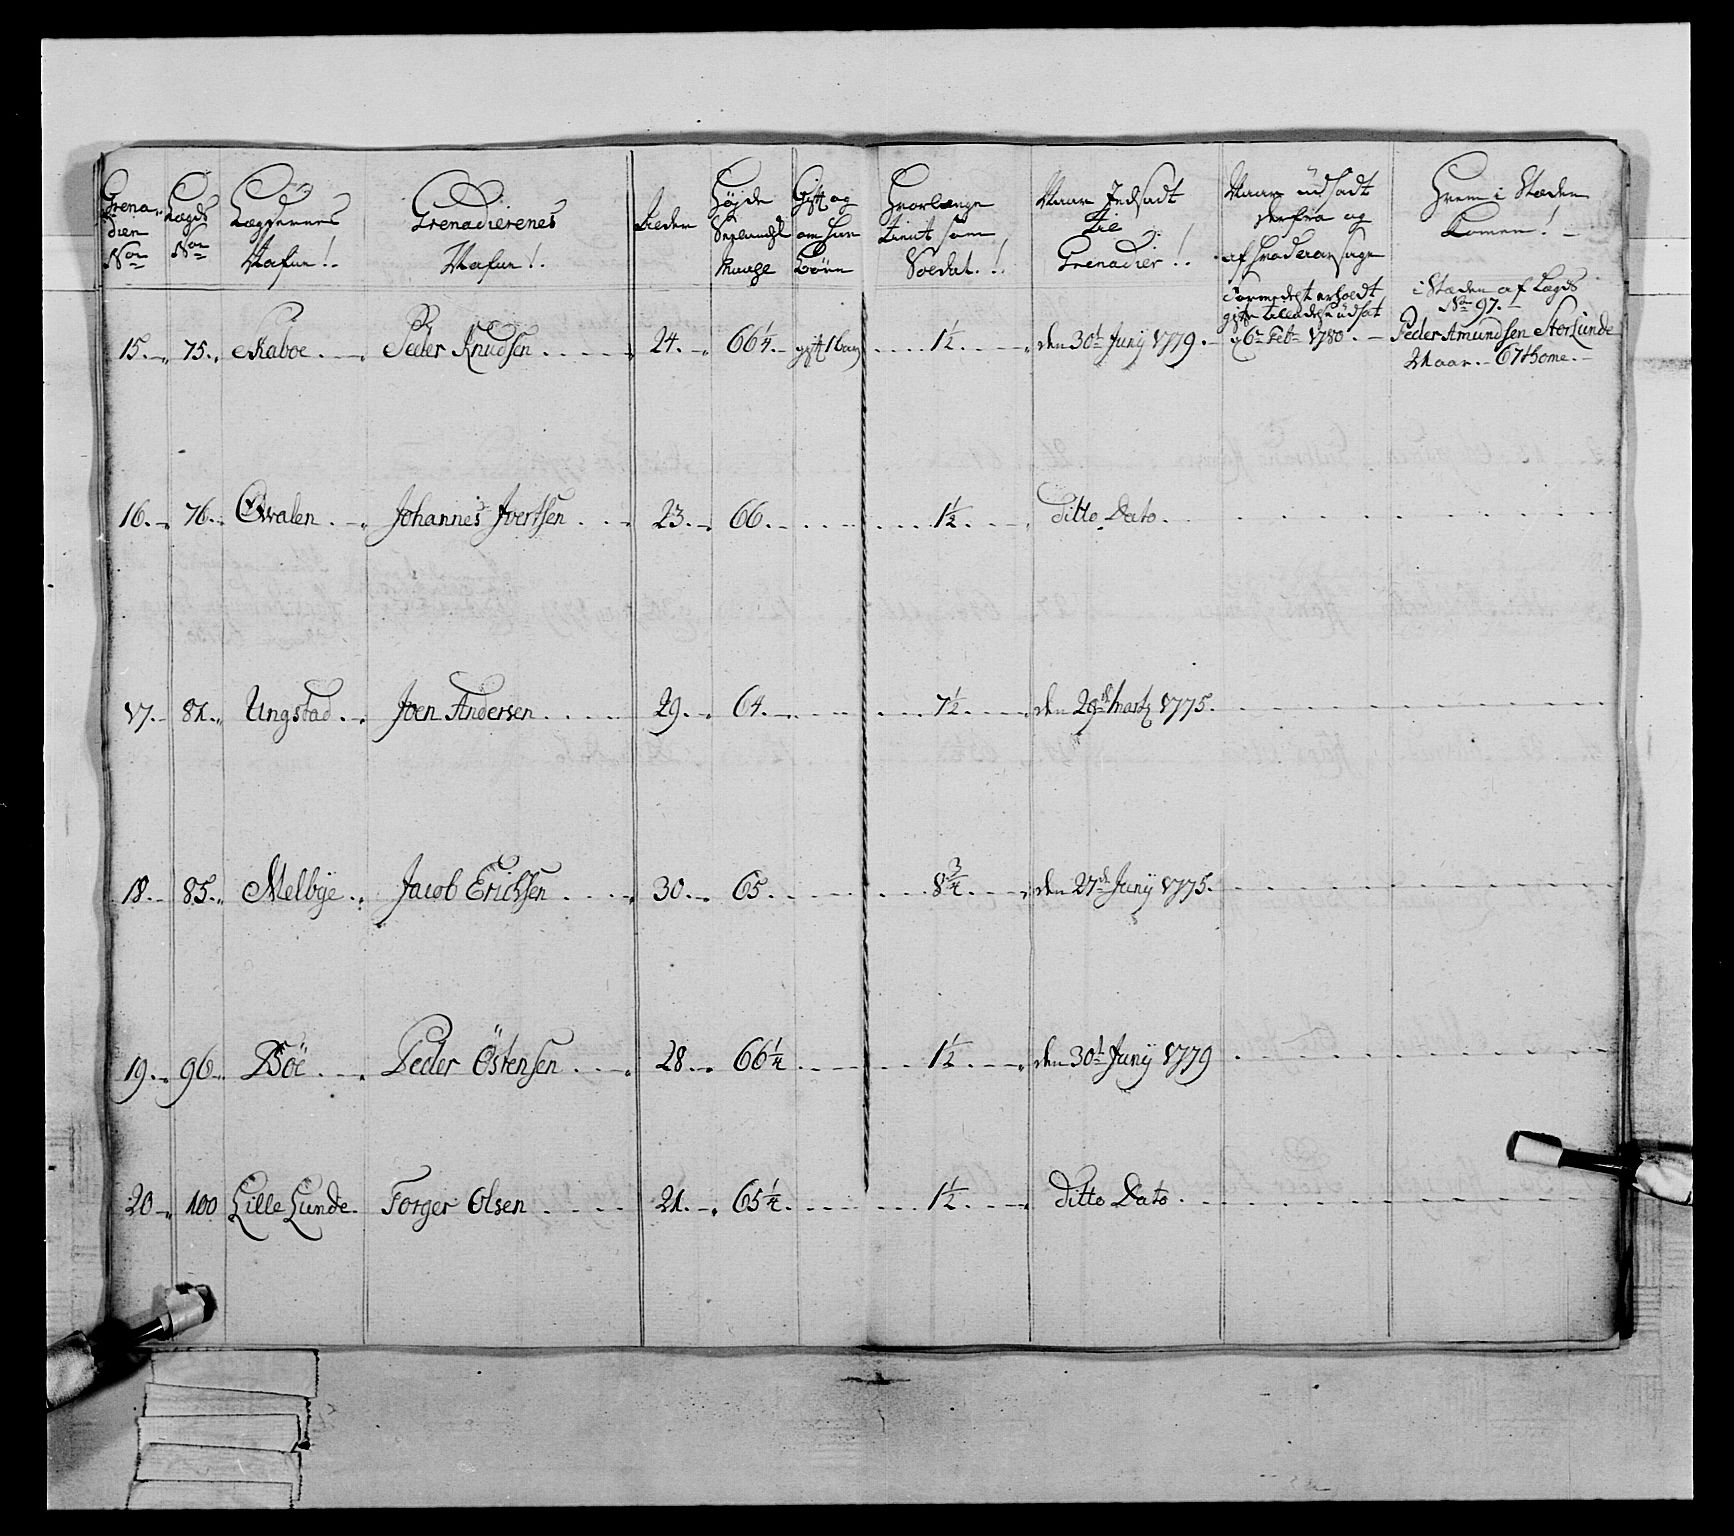 Grena-
dien
No
Lægds
No
Lægdernes
Nafne!
Grenadierenes
Nafne!
Alder
Højde
Gift og
om har
Børn
Hvorlænge
tient som
Soldat!
Naar Indsadt
til
Grenadier!
Naar udsadt
derfra og
Hvem i Stæden
komen!
15. 75. Skaboe. Peder Knudsen 24. 66¼ gift 1 barn 1½ den 30t Junÿ 1779.
6te Feb 1780.
i Stæden af Lægds
No 97.
Peder Amundsen StorLunde
21 aar. 67 thome.
16. 76. Qwalen Johannes Ivertsen 23. 66. 1½ ditto Dato.
17. 81. Ungstad Joen Andersen 29. 64. 7½ den 29de Martz 1775.
18. 85. Melbye Jacob Erichsen 30. 65. 8¾ den 27de Junÿ 1775.
19. 96. Böe Peder Östensen 28. 66¼ 1½ den 30t Junÿ 1779
20 100 Lille Lunde Torger Olsen 21. 65¼ 1½ ditto Dato